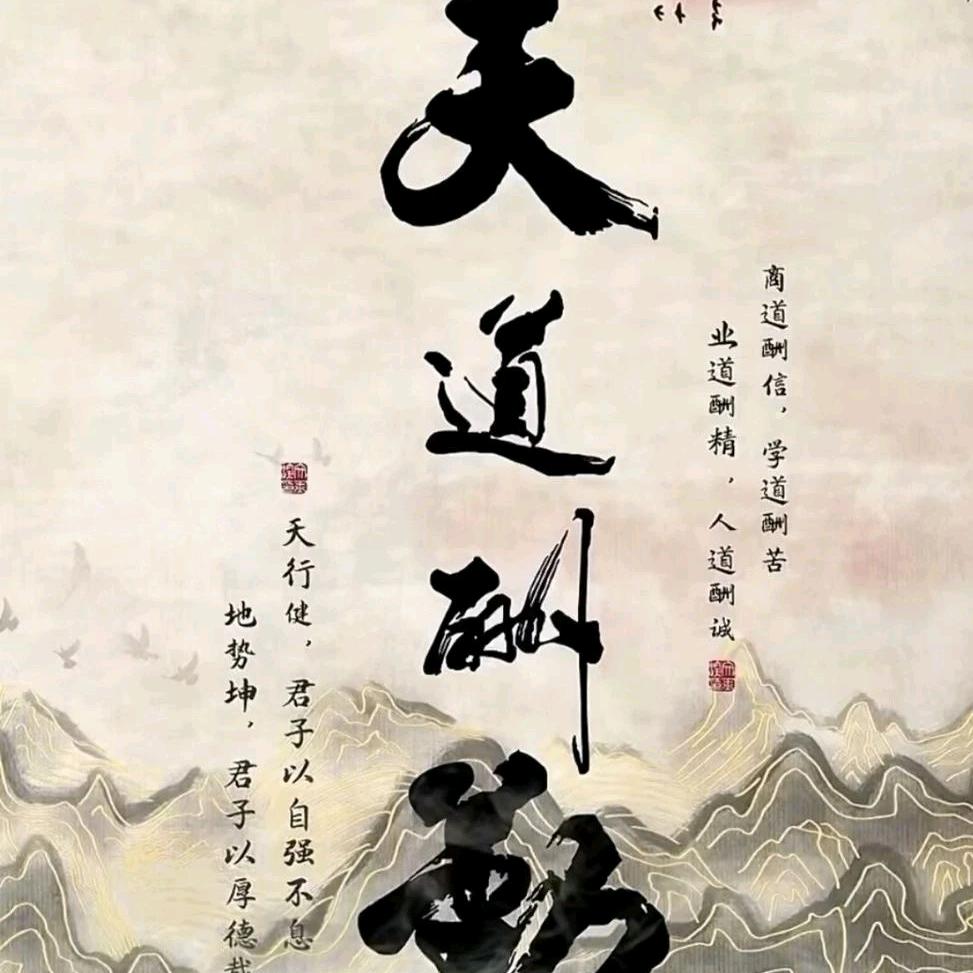 商道酬信，学道酬苦
业道酬精，人道酬诚
天道酬勤
天行健，君子以自强不息
地势坤，君子以厚德载